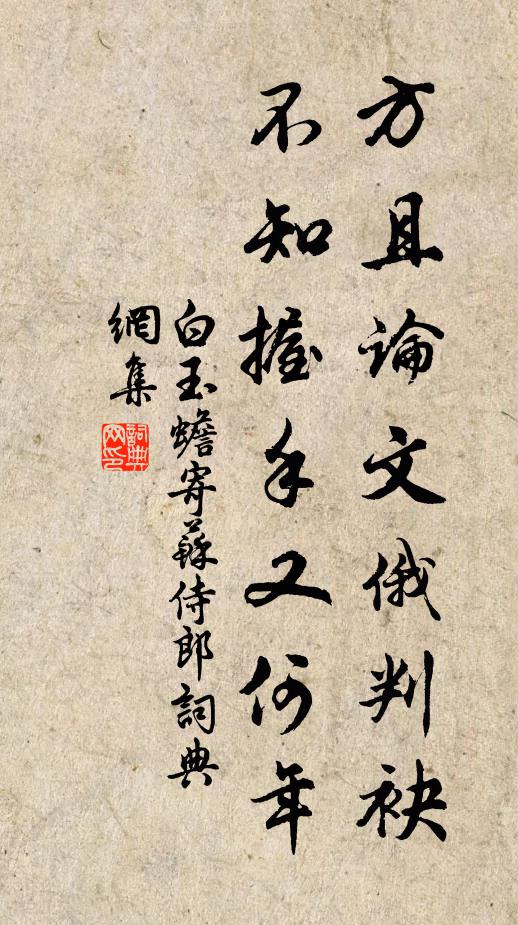 方且論文俄判袂
不知握手又何年
白玉蟾寄蘇侍郎詞典
網集
詞典網印